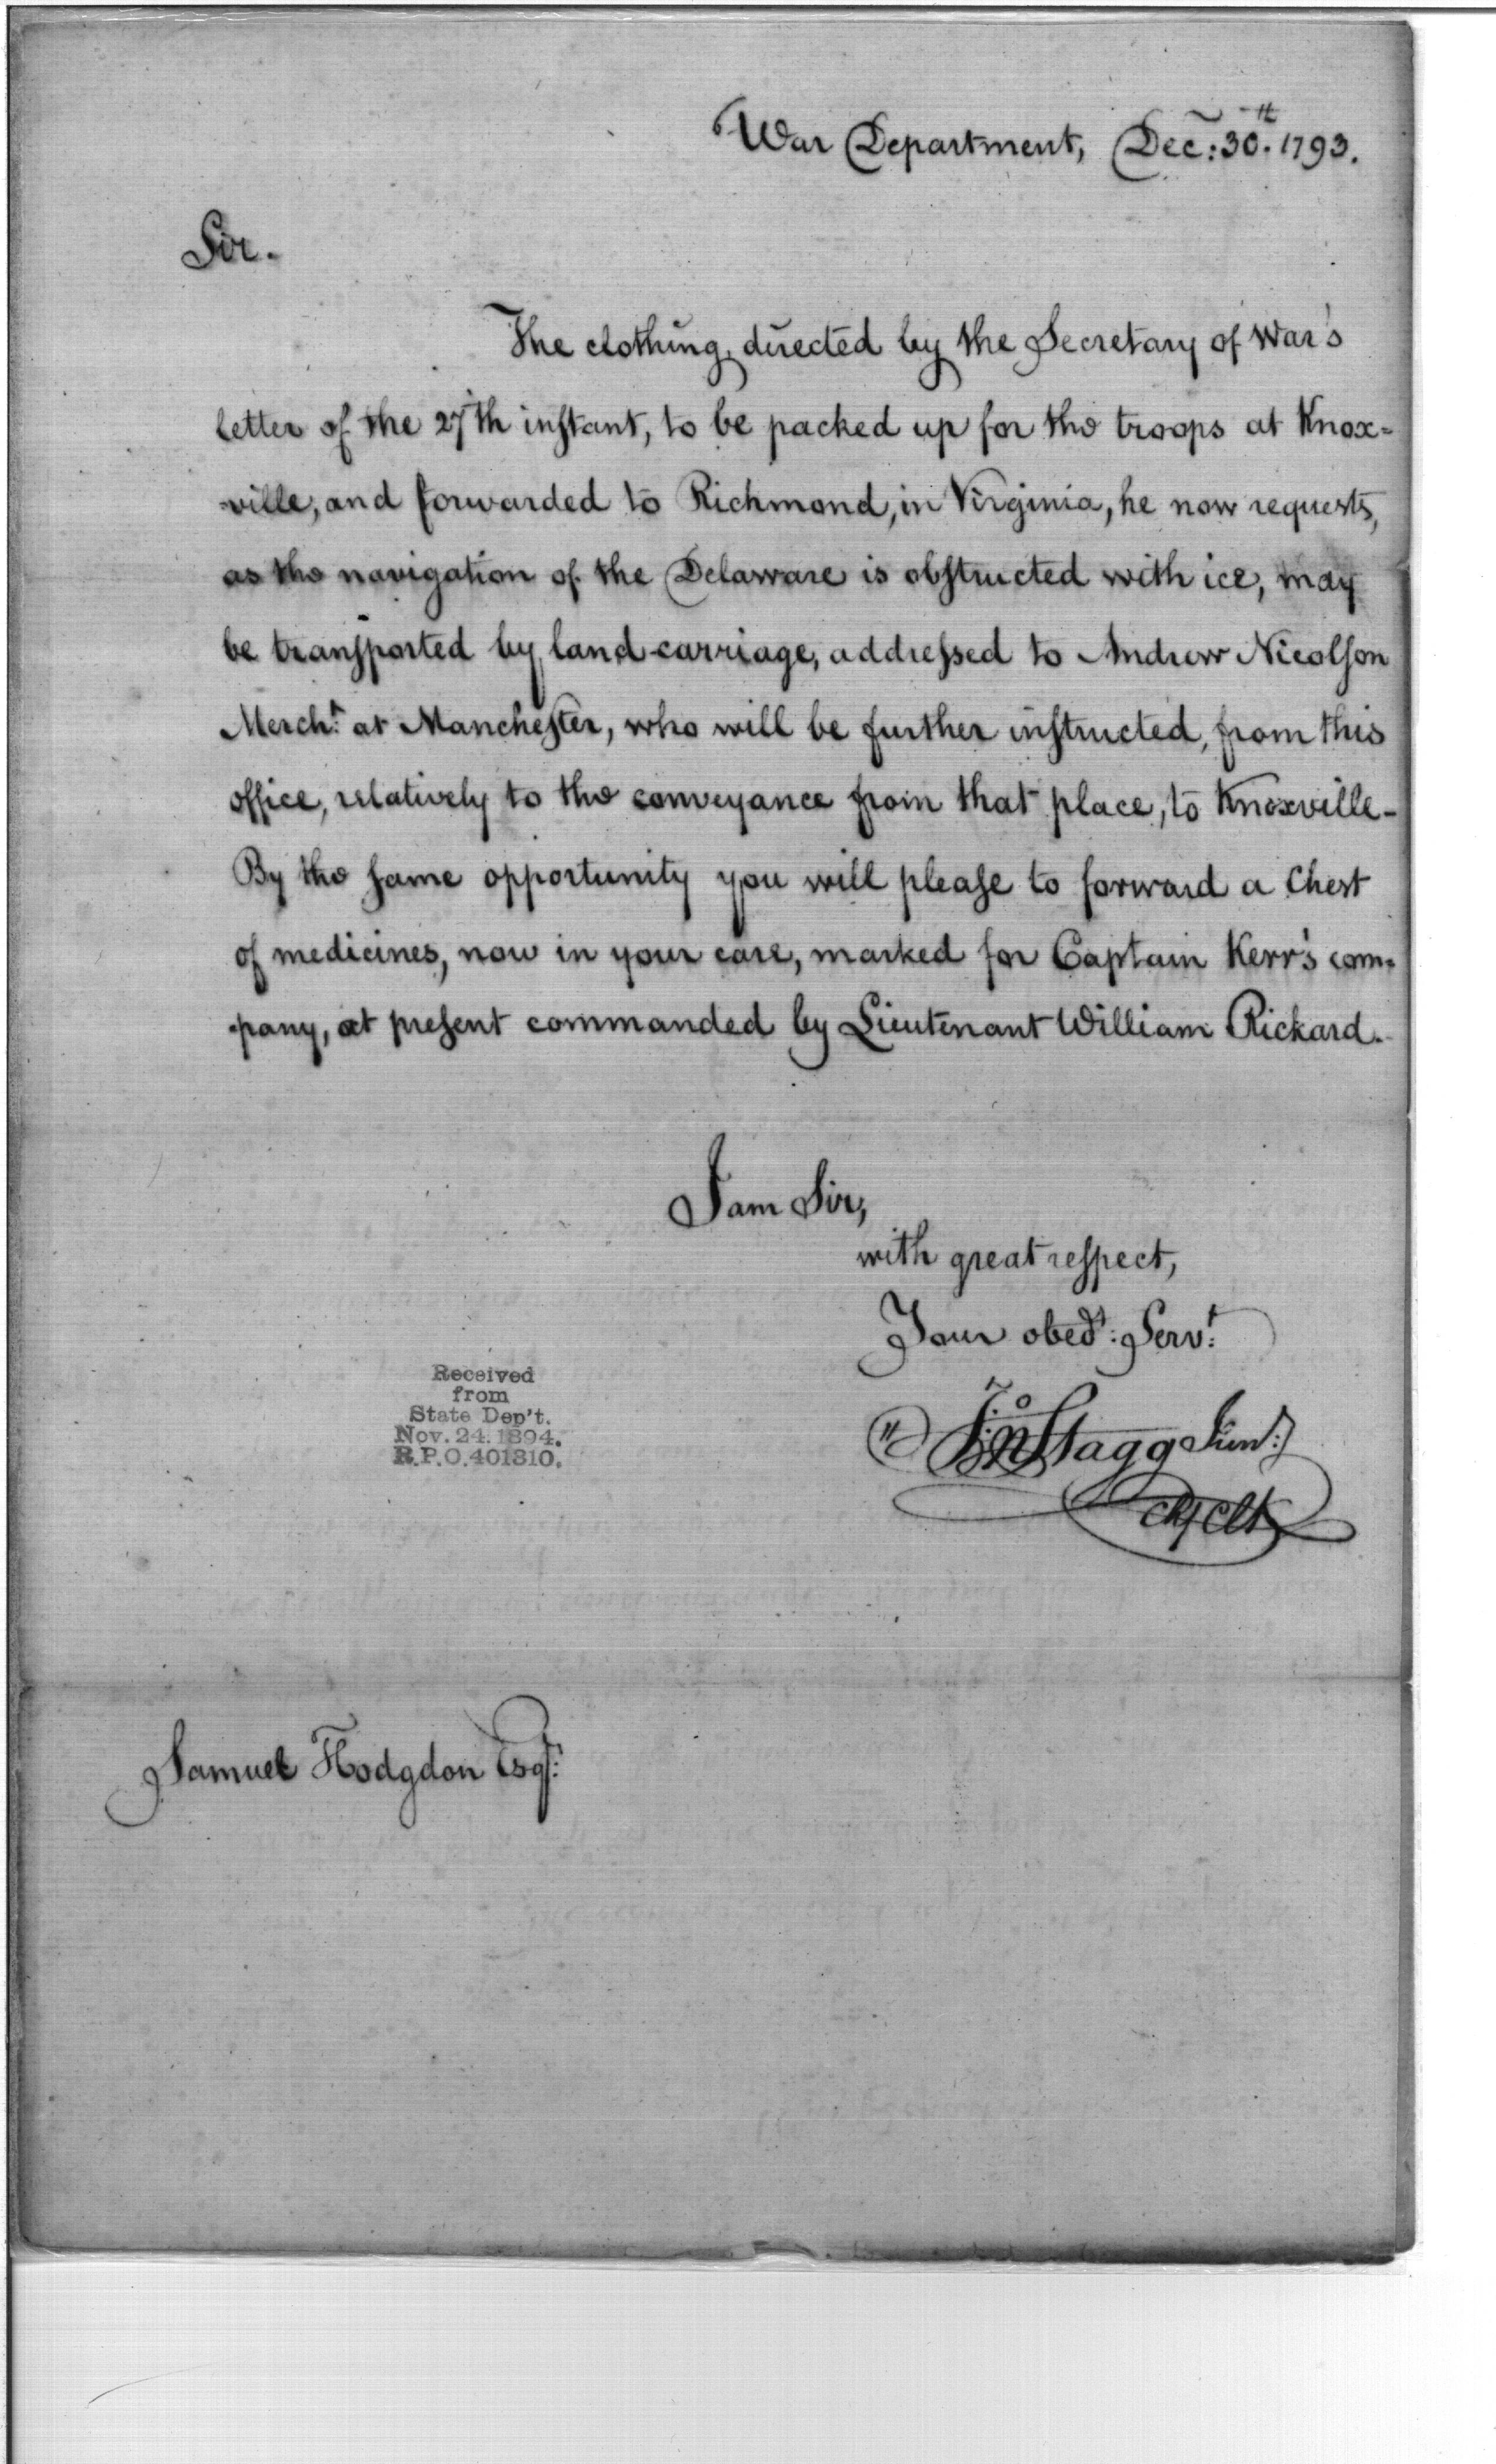 War Department, Dec: 30th. 1793.
Sir.
The clothing, directed by the Secretary of War's
letter of the 27th inſtant, to be packed up for the troops at Knox=
-ville, and forwarded to Richmond, in Virginia, he now requests,
as the navigation of the Delaware is obſtructed with ice, may
be tranſported by land-carriage, addreſsed to Andrew Nicolſon
Mercht: at Mancheſter, who will be further inſtructed, from this
office, relatively to the conveyance from that place, to Knoxville-
By the ſame opportunity you will pleaſe to forward a Chest
of medicines, now in your care, marked for Captain Kerr's com=
-pany, at preſent commanded by Lieutenant William Rickard.
I am Sir,
with great reſpect,
Your obedt: Servt:
Jno Stagg Junr:
Chf Clk
Received
from
State Dep't.
Nov. 24. 1894.
R.P.O. 401310.
Samuel Hodgdon Esqr: